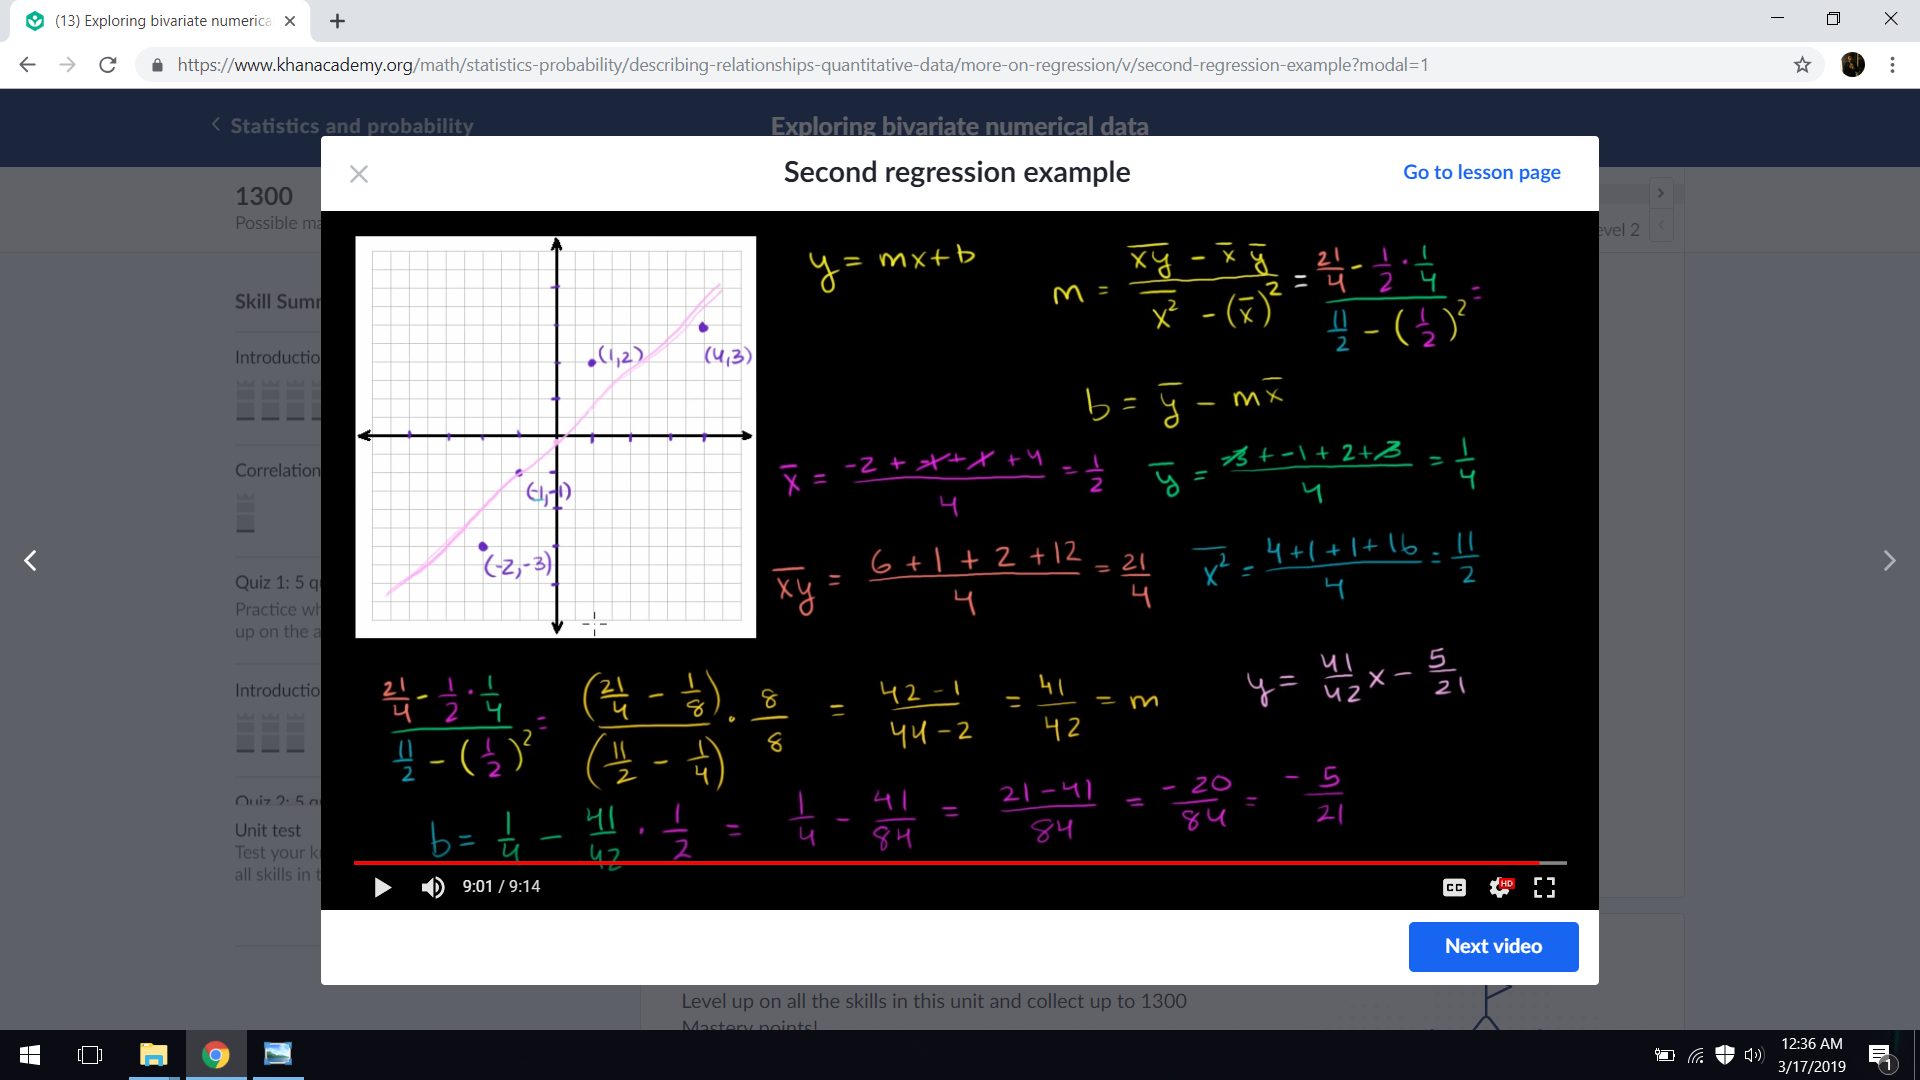 (13) Exploring bivariate numerica
https://www.khanacademy.org/math/statistics-probability/describing-relationships-quantitative-data/more-on-regression/v/second-regression-example?modal=1
Statistics and probability
Exploring bivariate numerical data
Second regression example
Go to lesson page
1300
Possible ma
evel 2
Skill Sum
Introductio
Correlation
Quiz 1: 5 q
Practice wh
up on the a
Introductio
Quiz 2: 5 q
Unit test
Test your k
all skills in t
(1,2)
(4,3)
(-1,-1)
(-2,-3)
y = mx+b
m = (x̄ȳ - x̄ ȳ) / (x̄² - (x̄)²) = (21/4 - 1/2 · 1/4) / (11/2 - (1/2)²) =
b = ȳ - mx̄
x̄ = (-2 + -1 + 1 + 4) / 4 = 1/2
ȳ = (-3 + -1 + 2 + 3) / 4 = 1/4
xy = (6 + 1 + 2 + 12) / 4 = 21/4
x² = (4 + 1 + 1 + 16) / 4 = 11/2
y = 41/42 x - 5/21
(21/4 - 1/2 · 1/4) / (11/2 - (1/2)²) = (21/4 - 1/8) / (11/2 - 1/4) · 8/8 = (42 - 1) / (44 - 2) = 41/42 = m
b = 1/4 - 41/42 · 1/2 = 1/4 - 41/84 = (21 - 41) / 84 = -20/84 = -5/21
9:01 / 9:14
CC
HD
Next video
Level up on all the skills in this unit and collect up to 1300
Mastery points!
12:36 AM
3/17/2019
1